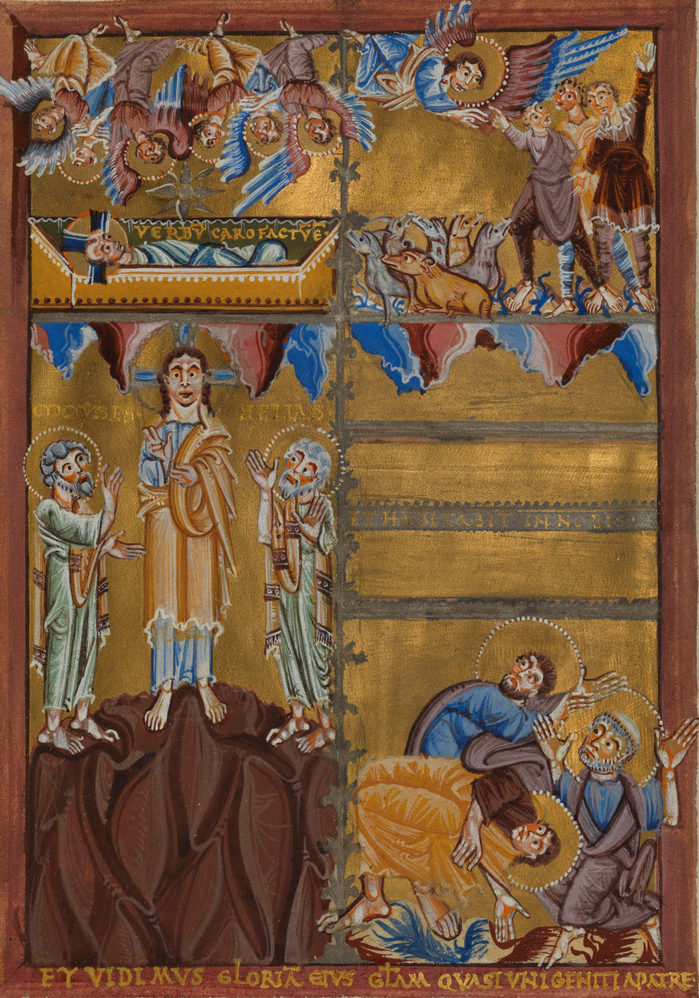 VERBV̅ CARO FACTV̅ E̅
MOYSES HELIAS
ET HABITABIT IN NOBIS
ET VIDIMVS GLORIA̅ EIVS GL̅AM QVASI VNIGENITI A PATRE